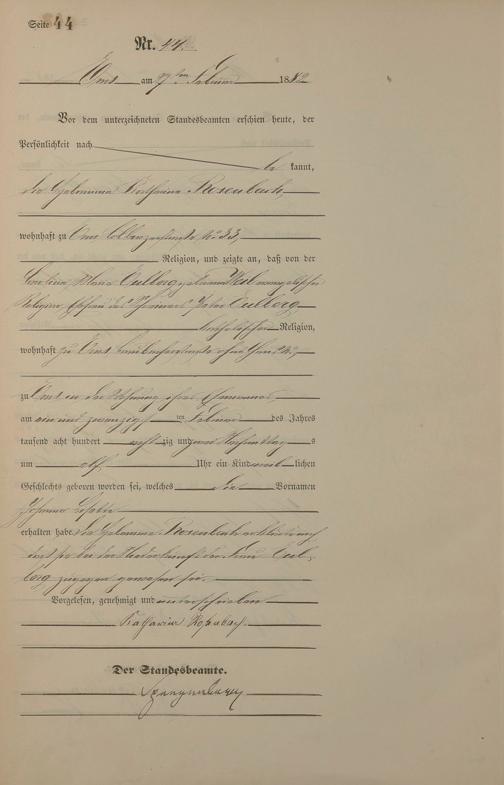 Seite 44
Nr. 44.
Ems am 27ten Februar 1882
Vor dem unterzeichneten Standesbeamten erschien heute, der
Persönlichkeit nach
be kannt,
die Hebamme Katharina Rosenbach,
wohnhaft zu Ems No 33,
Religion, und zeigte an, daß von der
Maria Oulberg geborene evangelischer
Religion, Ehefrau des Peter Oulberg
katholischer Religion,
wohnhaft zu Ems
zu Ems in der Wohnung ihres Ehemannes
am ein und zwanzigsten Februar des Jahres
tausend acht hundert acht zig und zwei Vormittags
um elf Uhr ein Kind weib lichen
Geschlechts geboren worden sei, welches die Vornamen
Johanna
erhalten habe. Die Hebamme Rosenbach erklärte noch
daß sie bei der Niederkunft der Frau Oul-
berg zugegen gewesen sei.
Vorgelesen, genehmigt und unterschrieben
Katharina Rosenbach
Der Standesbeamte.